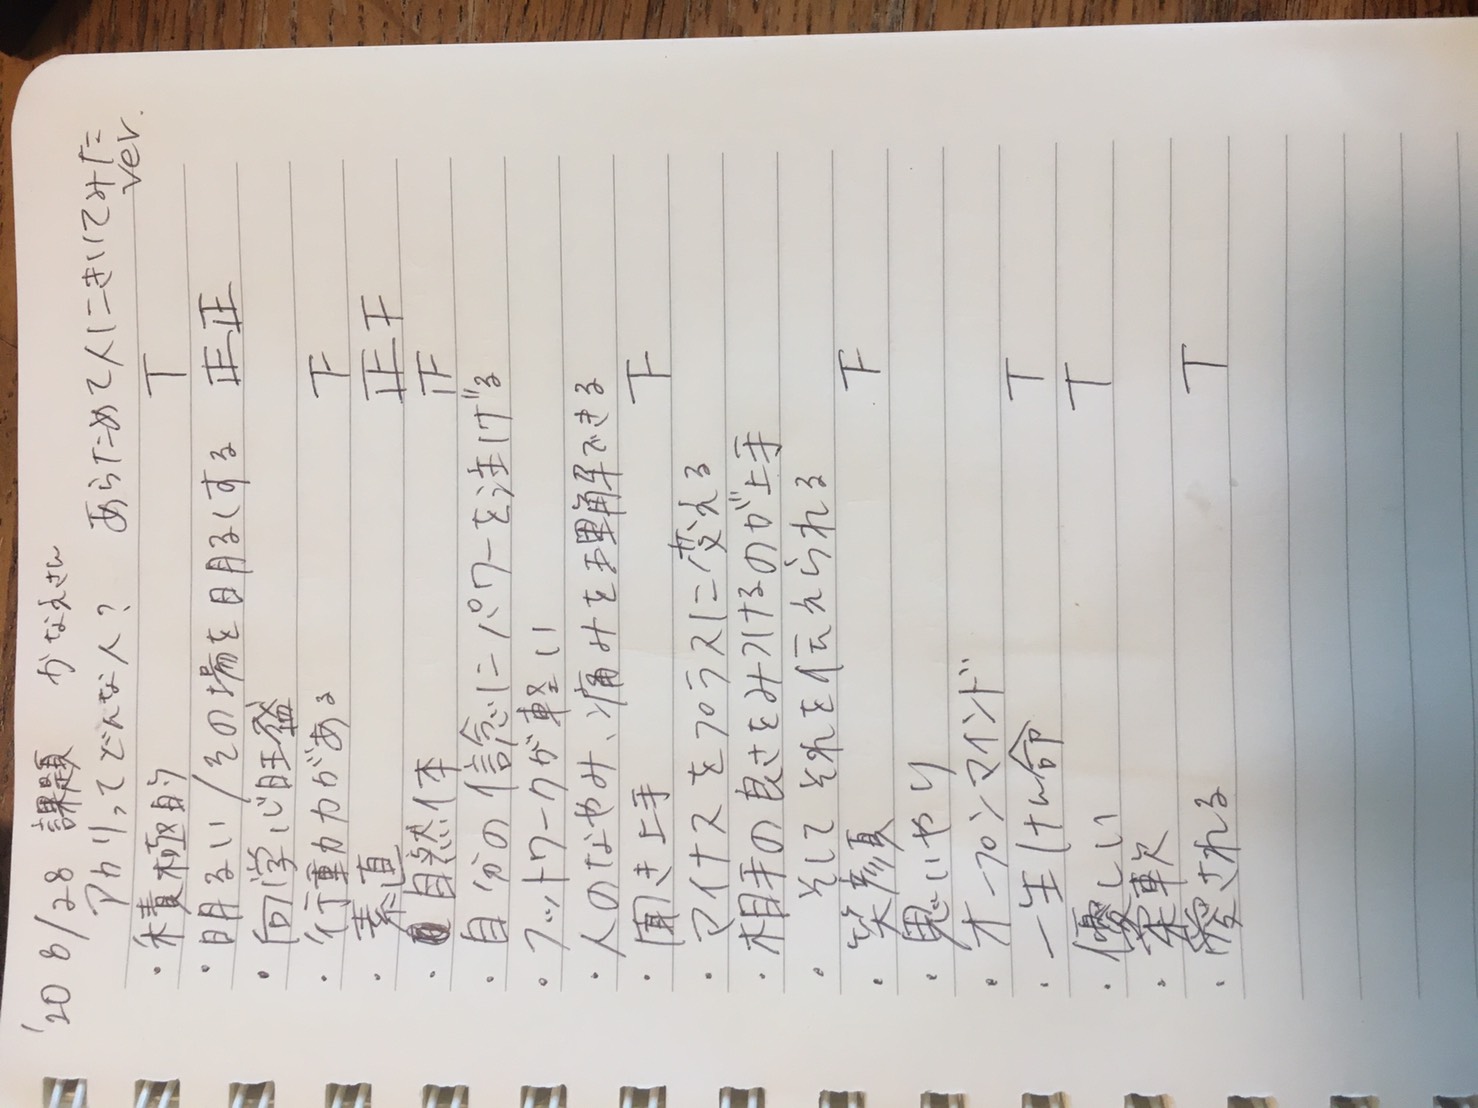 '20 8/28 課題 かなえさん
アカリってどんな人? あらためて人にきいてみた ver.
・積極的 T
・明るい/その場を明るくする 正正
・向学心旺盛
・行動力がある 下
・素直 正下
・自然体 正
・自分の信念にパワーを注げる
・フットワークが軽い
・人のなやみ、痛みを理解できる
・聞き上手 下
・マイナスをプラスに変える
・相手の良さをみつけるのが上手
・そしてそれを伝えられる
・笑顔 下
・思いやり
・オープンマインド
・一生けん命 T
・優しい T
・柔軟
・愛される T